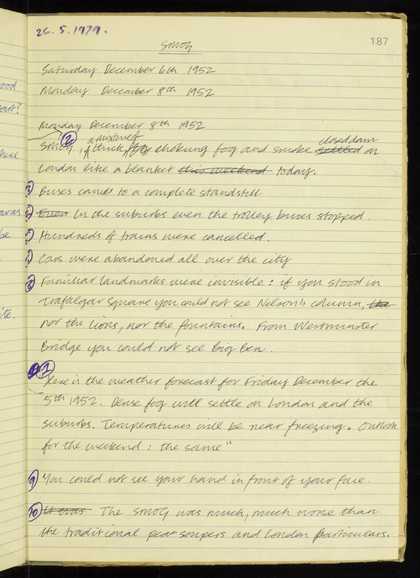 26.5.1979.
187
SMOG
Saturday December 6th 1952
Monday December 8th 1952
Monday December 8th 1952
a mixture of
closed down
② SMOG, a thick fog choking fog and smoke settled on
London like a blanket this weekend today.
Buses came to a complete standstill
Even In the suburbs even the trolley buses stopped.
Hundreds of trains were cancelled.
Cars were abandoned all over the city
⑧ Familiar landmarks were invisible: if you stood in
Trafalgar Square you could not see Nelson's column,
nor the lions, nor the fountains. From Westminster
Bridge you could not see Big Ben.
① "Here is the weather forecast for Friday December the
5th 1952. Dense fog will settle on London and the
suburbs. Temperatures will be near freezing. Outlook
for the weekend: the same"
⑨ You could not see your hand in front of your face.
⑩ It was The SMOG was much, much worse than
the traditional pea soupers and London particulars.